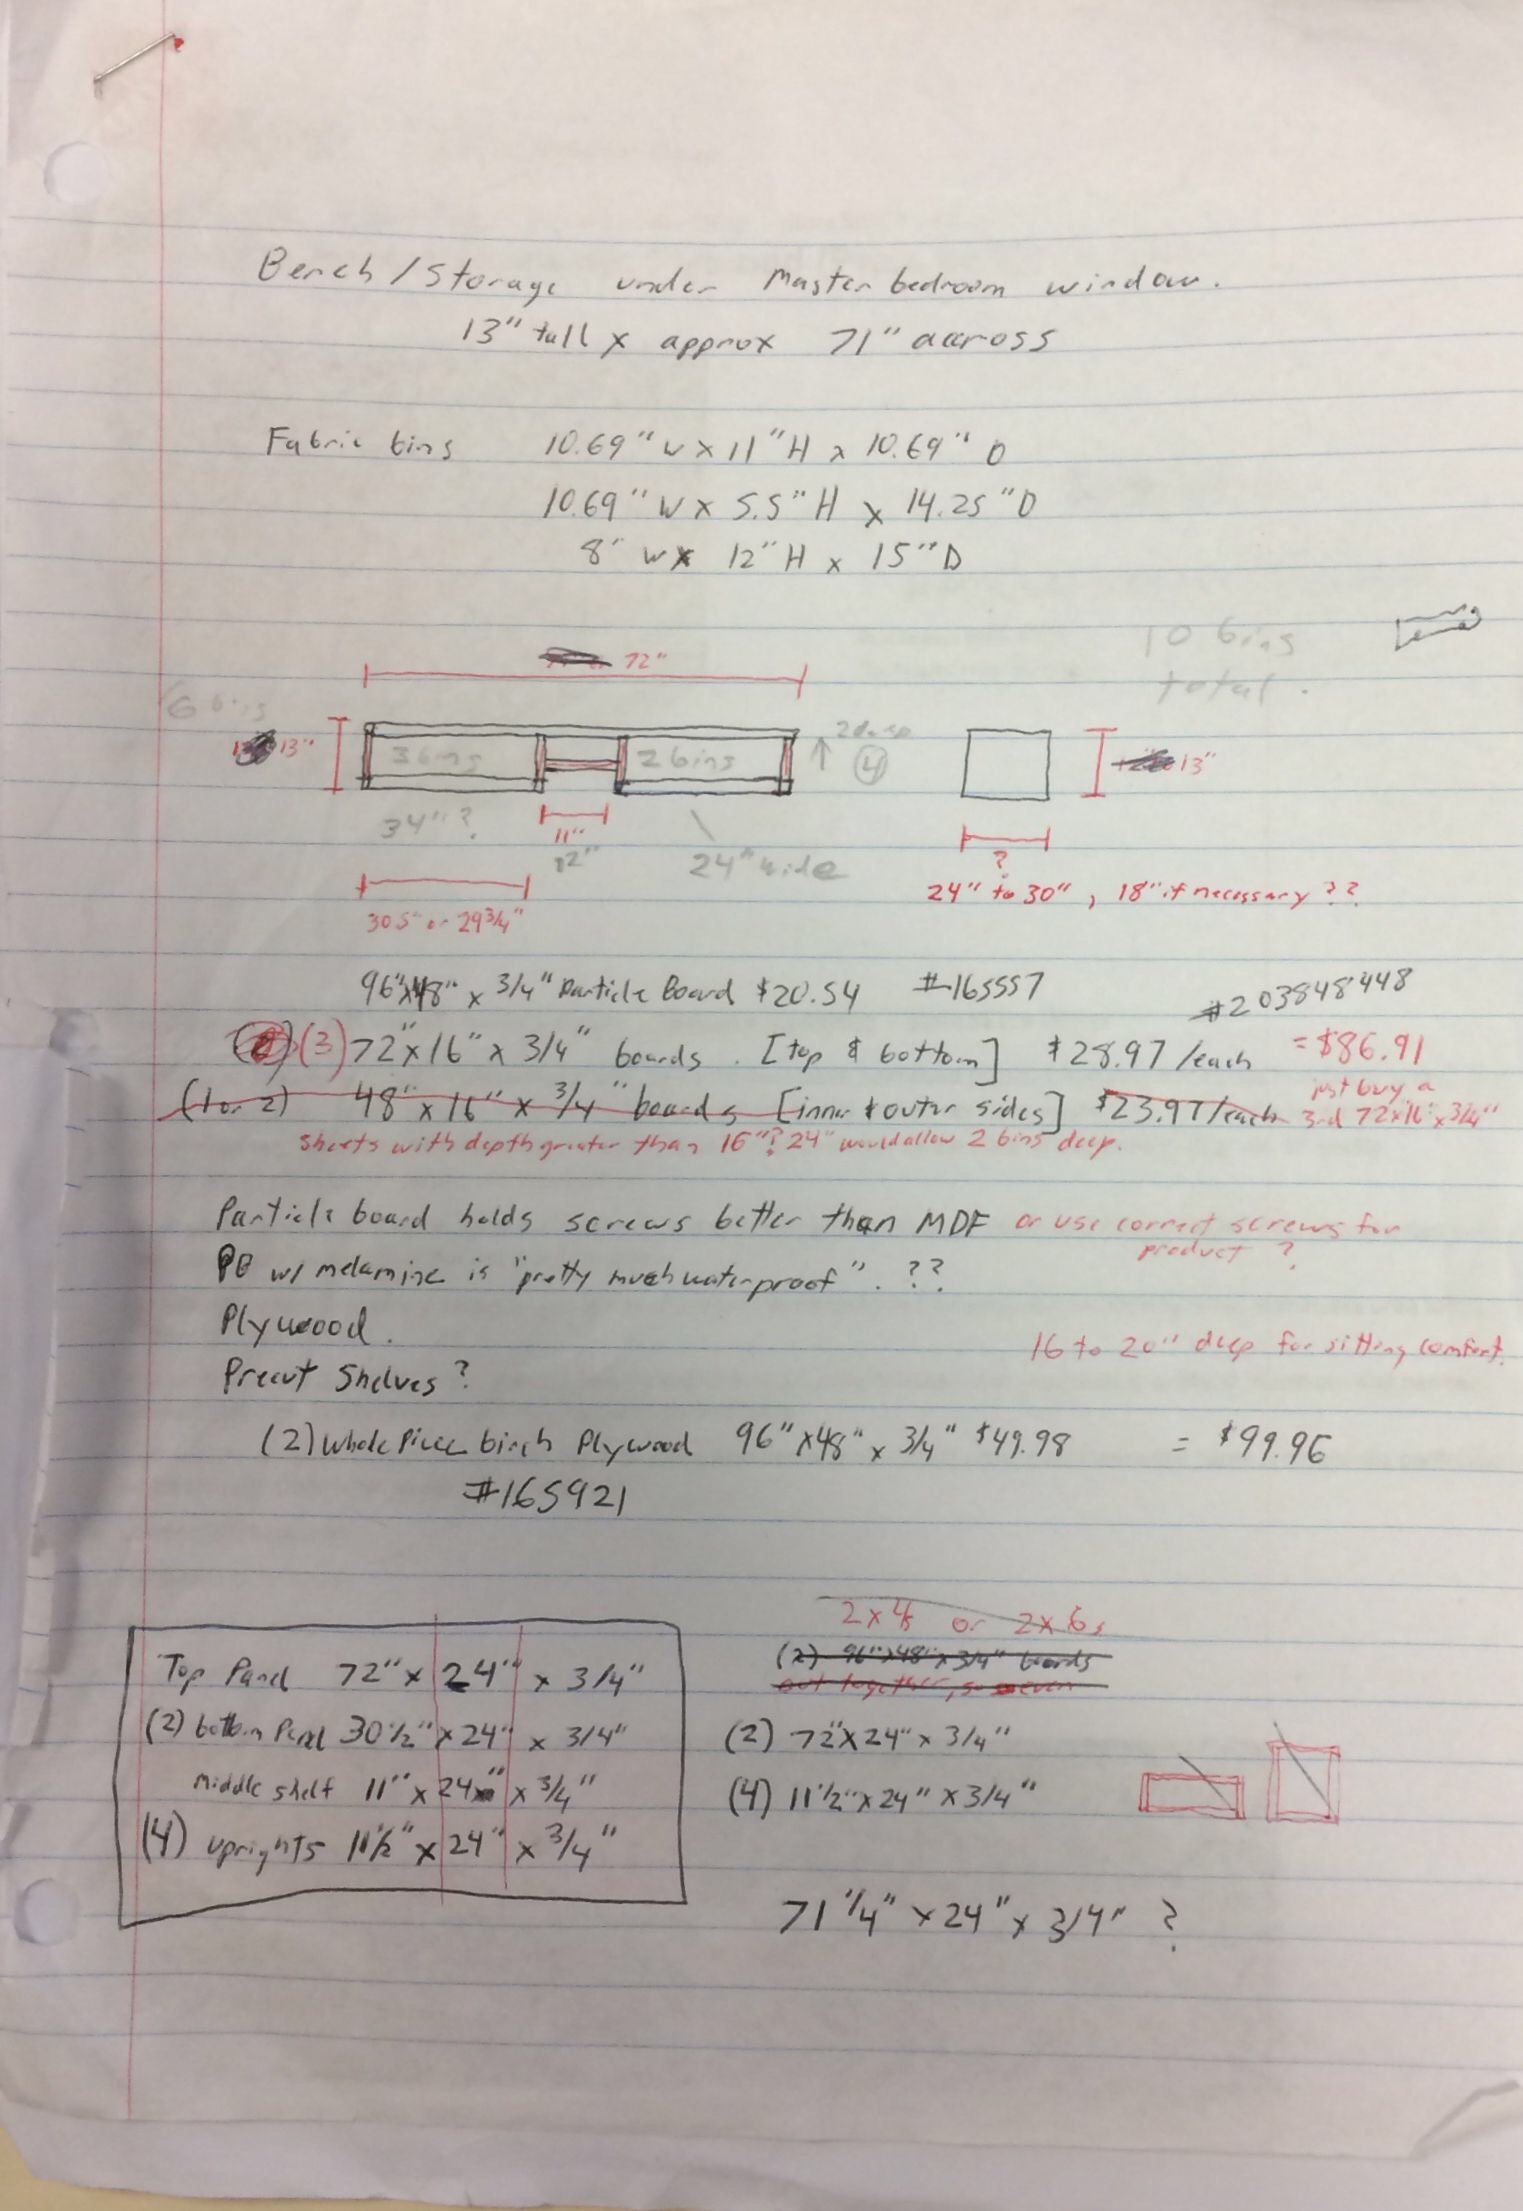 Bench/Storage under Master bedroom window.
13" tall x approx 71" accross
Fabric bins 10.69" W x 11" H x 10.69" D
10.69" W x 5.5" H x 14.25" D
8" W x 12" H x 15" D
10 bins
total.
72"
6 bins
13"
3 bins
2 bins
2 deep
4
13"
34"?
11"
12"
24" wide
?
24" to 30", 18" if necessary ??
30.5" or 29 3/4"
96"x48" x 3/4" Particle Board $20.54 #165557 #203848448
(3) 72" x 16" x 3/4" boards. [top & bottom] $28.97/each = $86.91
(1 or 2) 48" x 16" x 3/4" boards [inner & outer sides] $23.97/each
just buy a
3rd 72x16"x3/4"
Sheets with depth greater than 16"? 24" would allow 2 bins deep.
Particle board holds screws better than MDF or use correct screws for
product?
PB w/ melamine is "pretty much waterproof". ??
Plywood.
16 to 20" deep for sitting comfort.
Precut Shelves?
(2) Whole Piece birch Plywood 96" x 48" x 3/4" $49.98 = $99.96
#165921
2x4s or 2x6s
(2) 96"x48"x3/4" boards
cut together, so even
Top Panel 72" x 24" x 3/4"
(2) bottom Panel 30 1/2" x 24" x 3/4"
Middle shelf 11" x 24" x 3/4"
(4) uprights 11 1/2" x 24" x 3/4"
(2) 72"x24"x 3/4"
(4) 11 1/2"x24" x 3/4"
71 1/4" x 24" x 3/4" ?